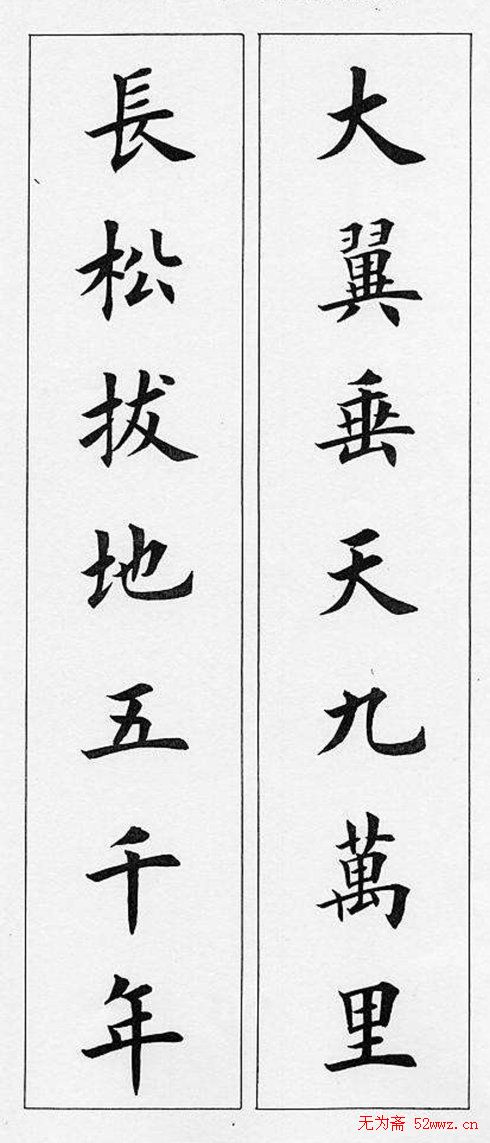 大翼垂天九萬里
長松拔地五千年
无为斋 52wwz.cn